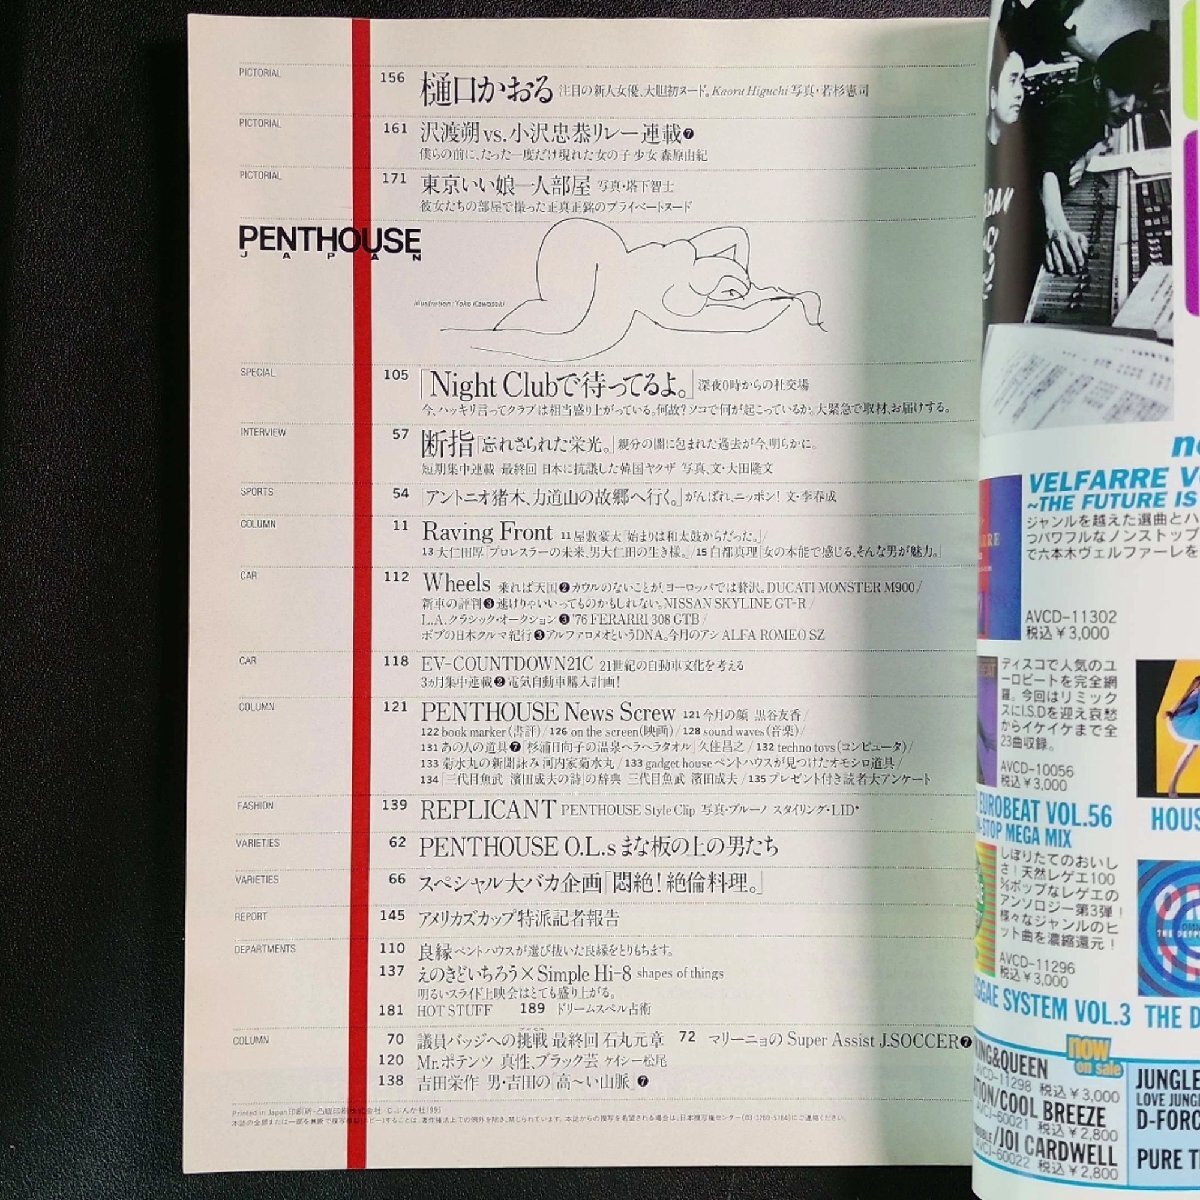 PICTORIAL
156 樋口かおる 注目の新人女優、大胆初ヌード。Kaoru Higuchi 写真・若杉憲司
PICTORIAL
161 沢渡朔 vs. 小沢忠恭リレー連載❼
僕らの前に、たった一度だけ現れた女の子 少女 森原由紀
PICTORIAL
171 東京いい娘一人部屋 写真・塔下智士
彼女たちの部屋で撮った正真正銘のプライベートヌード
PENTHOUSE
JAPAN
illustration: Yoko Kawasaki
SPECIAL
105 「Night Clubで待ってるよ。」深夜0時からの社交場
今、ハッキリ言ってクラブは相当盛り上がっている。何故?ソコで何が起こっているか。大緊急で取材、お届けする。
INTERVIEW
57 断指「忘れさられた栄光。」親分の闇に包まれた過去が今、明らかに。
短期集中連載 最終回 日本に抗議した韓国ヤクザ 写真、文・大田隆文
SPORTS
54 「アントニオ猪木、力道山の故郷へ行く。」がんばれ、ニッポン! 文・李春成
COLUMN
11 Raving Front 11 屋敷豪太「始まりは和太鼓からだった。」/
13 大仁田厚「プロレスラーの未来、男大仁田の生き様。」/15 白都真理「女の本能で感じる、そんな男が魅力。」
CAR
112 Wheels 乗れば天国❷カウルのないことが、ヨーロッパでは贅沢。DUCATI MONSTER M900/
新車の評判❸速けりゃいいってものかもしれない。NISSAN SKYLINE GT-R/
L.A.クラシック・オークション❸'76 FERARRI 308 GTB/
ボブの日本クルマ紀行❸アルファロメオというDNA。今月のアシ ALFA ROMEO SZ
CAR
118 EV-COUNTDOWN21C 21世紀の自動車文化を考える
3ヵ月集中連載❷電気自動車購入計画!
COLUMN
121 PENTHOUSE News Screw 121 今月の顔 黒谷友香/
122 book marker(書評)/126 on the screen(映画)/128 sound waves(音楽)/
131 あの人の道具❼「杉浦日向子の温泉ヘラヘラタオル」久住昌之/132 techno toys(コンピュータ)/
133 菊水丸の新聞詠み 河内家菊水丸/133 gadget house ペントハウスが見つけたオモシロ道具/
134 「三代目魚武 濱田成夫の詩」の辞典 三代目魚武 濱田成夫/135 プレゼント付き読者大アンケート
FASHION
139 REPLICANT PENTHOUSE Style Clip 写真・ブルーノ スタイリング・LID
VARIETIES
62 PENTHOUSE O.L.s まな板の上の男たち
VARIETIES
66 スペシャル大バカ企画「悶絶! 絶倫料理。」
REPORT
145 アメリカズカップ特派記者報告
DEPARTMENTS
110 良縁 ペントハウスが選び抜いた良縁をとりもちます。
137 えのきどいちろう×Simple Hi-8 shapes of things
明るいスライド上映会はとても盛り上がる。
181 HOT STUFF 189 ドリームスペル占術
COLUMN
70 議員バッジへの挑戦 最終回 石丸元章 72 マリーニョの Super Assist J.SOCCER❼
120 Mr.ポテンツ 真性、ブラック芸 ケイシー松尾
138 吉田栄作 男・吉田の「高〜い山脈」❼
VELFARRE V
~THE FUTURE IS
ジャンルを越えた選曲とハ
つパワフルなノンストップ
で六本木ヴェルファーレを
AVCD-11302
税込¥3,000
ディスコで人気のユ
ーロビートを完全網
羅。今回はリミック
スにI.S.Dを迎え哀愁
からイケイケまで全
23曲収録。
AVCD-10056
税込¥3,000
EUROBEAT VOL.56
N-STOP MEGA MIX
HOUS
しぼりたてのおいし
さ!天然レゲエ100
%ポップなレゲエの
アンソロジー第3弾!
様々なジャンルのヒ
ット曲を濃縮還元!
AVCD-11296
税込¥3,000
GGAE SYSTEM VOL.3
THE D
now
on sale
KING&QUEEN
AVCD-11298 税込¥3,000
TION/COOL BREEZE
AVCJ-60021 税込¥2,800
/JOI CARDWELL
AVCJ-60022 税込¥2,800
JUNGLE
LOVE JUNG
D-FORC
PURE T